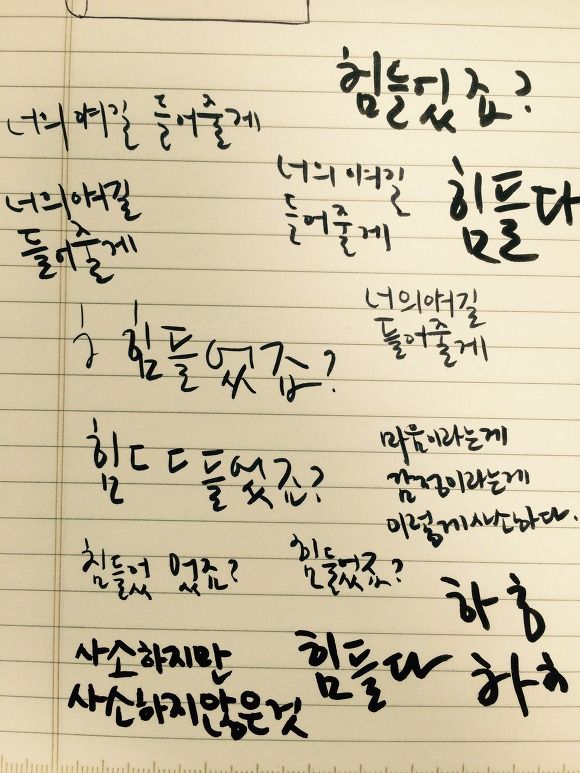 힘들었죱?
너의 얘길 들어줄게
너의 얘길
들어줄게
너의 얘길
들어줄게
힘들다
너의 얘길
들어줄게
힘들었죱?
힘 ㄷ ㄷ 들었죠?
마음이라는게
감정이라는게
이렇게 사소하다.
힘들었 었죱?
힘들었죱?
하 흐
사소하지만
사소하지않은것
힘들다
하 하